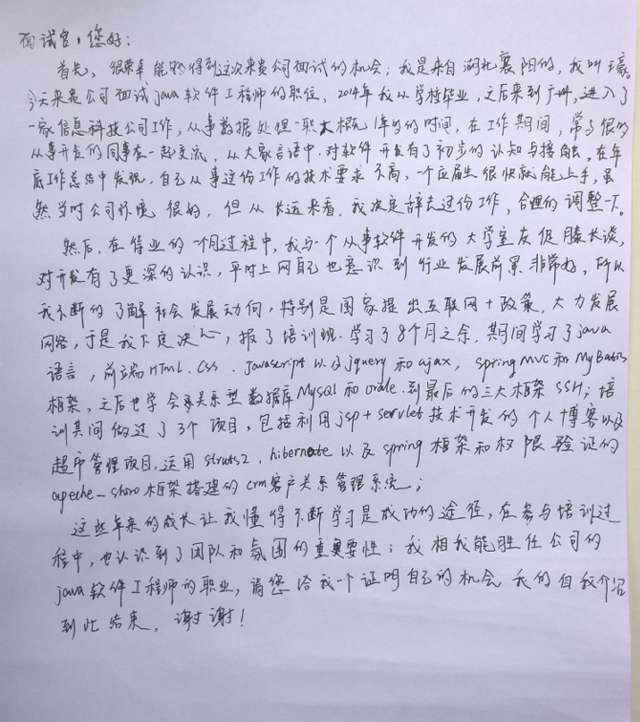 面试官,您好:
首先,很荣幸能够得到这次来贵公司面试的机会;我是来自湖北襄阳的,我叫
今天来贵公司面试java软件工程师的职位,2014年我从学校毕业,之后来到广州,进入了
一家信息科技公司工作,从事数据处理一职大概1年的时间,在工作期间,常与很的
从事开发的同事在一起交流,从大家言语中,对软件开发有了初步的认知与接触。在年
底工作总结中发现,自己从事这份工作的技术要求不高,一个应届生很快就能上手,虽
然当时公司环境很好,但从长远来看,我决定辞去这份工作,合理的调整一下。
然后,在待业的一个月过程中,我与一个从事软件开发的大学室友促膝长谈,
对开发有了更深的认识,平时上网自己也意识到行业发展前景非常好,所以
我不断的了解社会发展动向,特别是国家提出互联网+政策,大力发展
网络,于是我下定决心,报了培训班.学习了8个月之余,期间学习了java
语言,前端HTML.CSS.Javascript以及jquery和ajax,springMVC和MyBatis
框架,之后也学会了关系型数据库Mysql和oracle.到最后的三大框架SSH;培
训其间做过了3个项目,包括利用jsp+servlet技术开发的个人博客以及
超市管理项目,运用struts2.hibernate以及spring框架和权限验证的
apeche-shiro框架搭建的crm客户关系管理系统;
这些年来的成长让我懂得不断学习是成功的途径,在参与培训过
程中,也认识到了团队和氛围的重要性;我相我能胜任公司的
java软件工程师的职业,请您给我一个证明自己的机会.我的自我介绍
到此结束,谢谢!